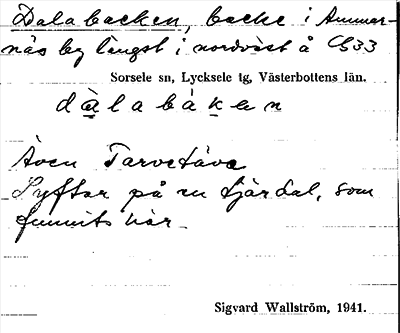 Dalabacken, backe i Ammar-
näs by längst i nordväst å
Sorsele sn, Lycksele tg, Västerbottens län.
dàlabákan
Även Tarvetäve
Syftar på en tjärdal, som
funnits här.
Sigvard Wallström, 1941.